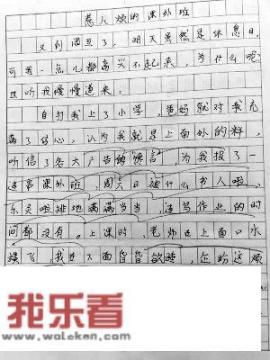 惹人烦的课外班
又到周五了，明天虽然是休息日，
可我怎么都高兴不起来，为什么呢？
且听我慢慢道来。
自打我上了小学，爸妈就对我充
满了信心，认为我就是上面外的料，
听信了各大广告的馋言，为我报了一
连串课外班，周六日被什么书人啦，
乐灵啦排地满满当当，连写作业的时
间都没有。上课时，老师在上面口水
爆飞，我在下面昏昏欲睡，在盼这
我乐看
.com